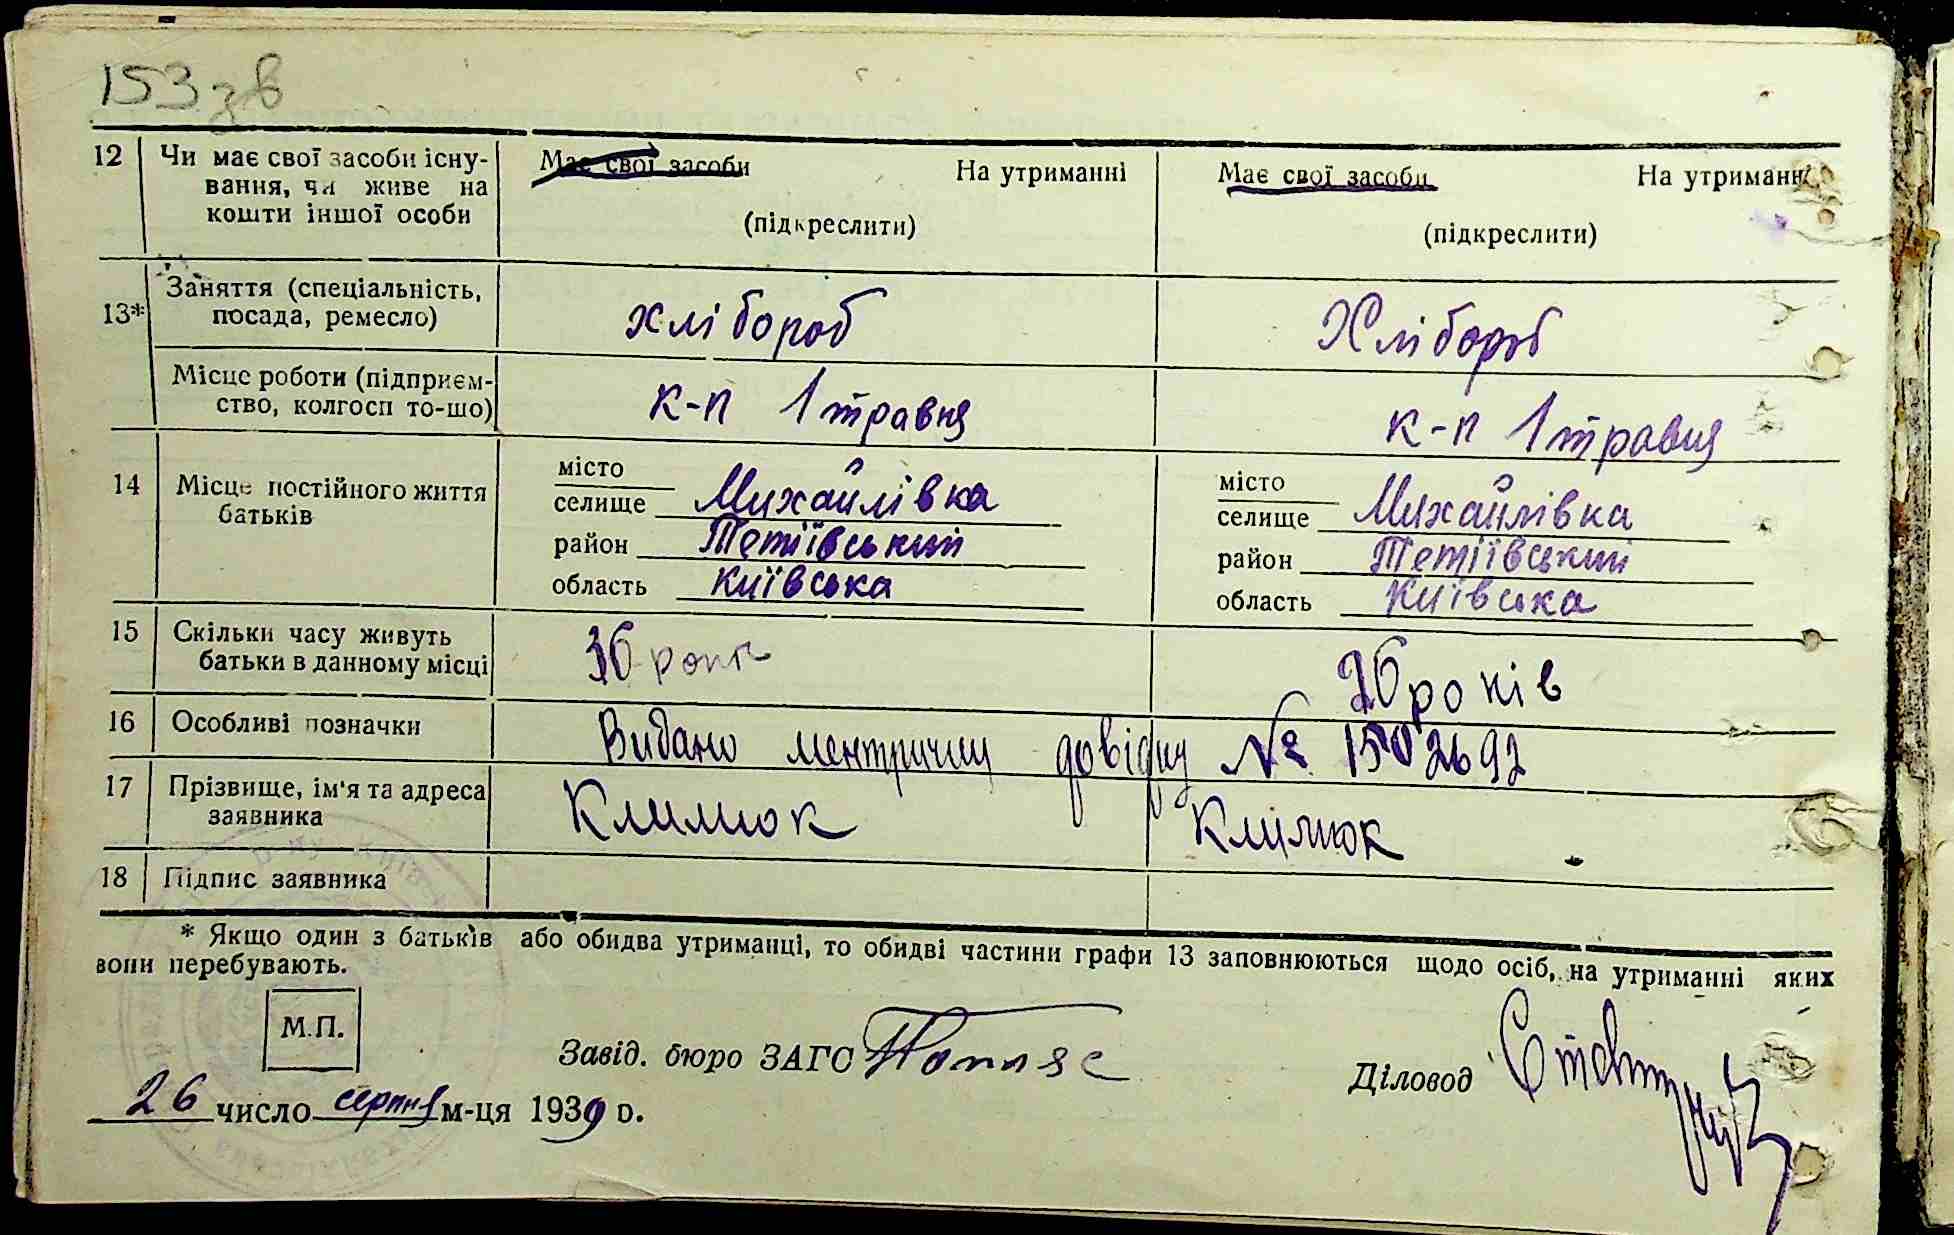 153 зв
12 Чи має свої засоби існу-
вання, чи живе на
кошти іншої особи
Має свої засоби На утриманні
(підкреслити)
Має свої засоби На утриманні
(підкреслити)
13* Заняття (спеціальність,
посада, ремесло)
хлібороб
Хлібороб
Місце роботи (підприєм-
ство, колгосп то-що)
к-п 1 травня
к-п 1 травня
14 Місце постійного життя
батьків
місто
селище Михайлівка
район Тетіївський
область Київська
місто
селище Михайлівка
район Тетіївський
область Київська
15 Скільки часу живуть
батьки в данному місці
36 роки
26 років
16 Особливі позначки
Видано довідку № 1502692
17 Прізвище, ім'я та адреса
заявника
Климюк
Климюк
18 Підпис заявника
* Якщо один з батьків або обидва утриманці, то обидві частини графи 13 заповнюються щодо осіб, на утриманні яких
вони перебувають.
М.П.
Завід. бюро ЗАГС
Діловод
26 число серпня м-ця 1939 р.